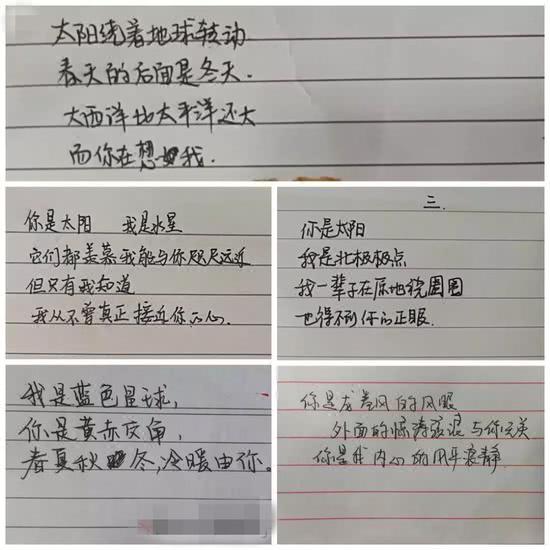 太阳绕着地球转动
春天的后面是冬天.
大西洋比太平洋还大
而你在想我.
你是太阳 我是水星
它们都羡慕我能与你咫尺远近
但只有我知道
我从不曾真正接近你的心.
三.
你是太阳
我是北极极点
我一辈子在原地绕圈圈
也得不到你的正眼.
我是蓝色星球,
你是黄赤交角,
春夏秋冬,冷暖由你。
你是龙卷风的风眼
外面的惊涛骇浪与你无关
你是我内心的风平浪静.